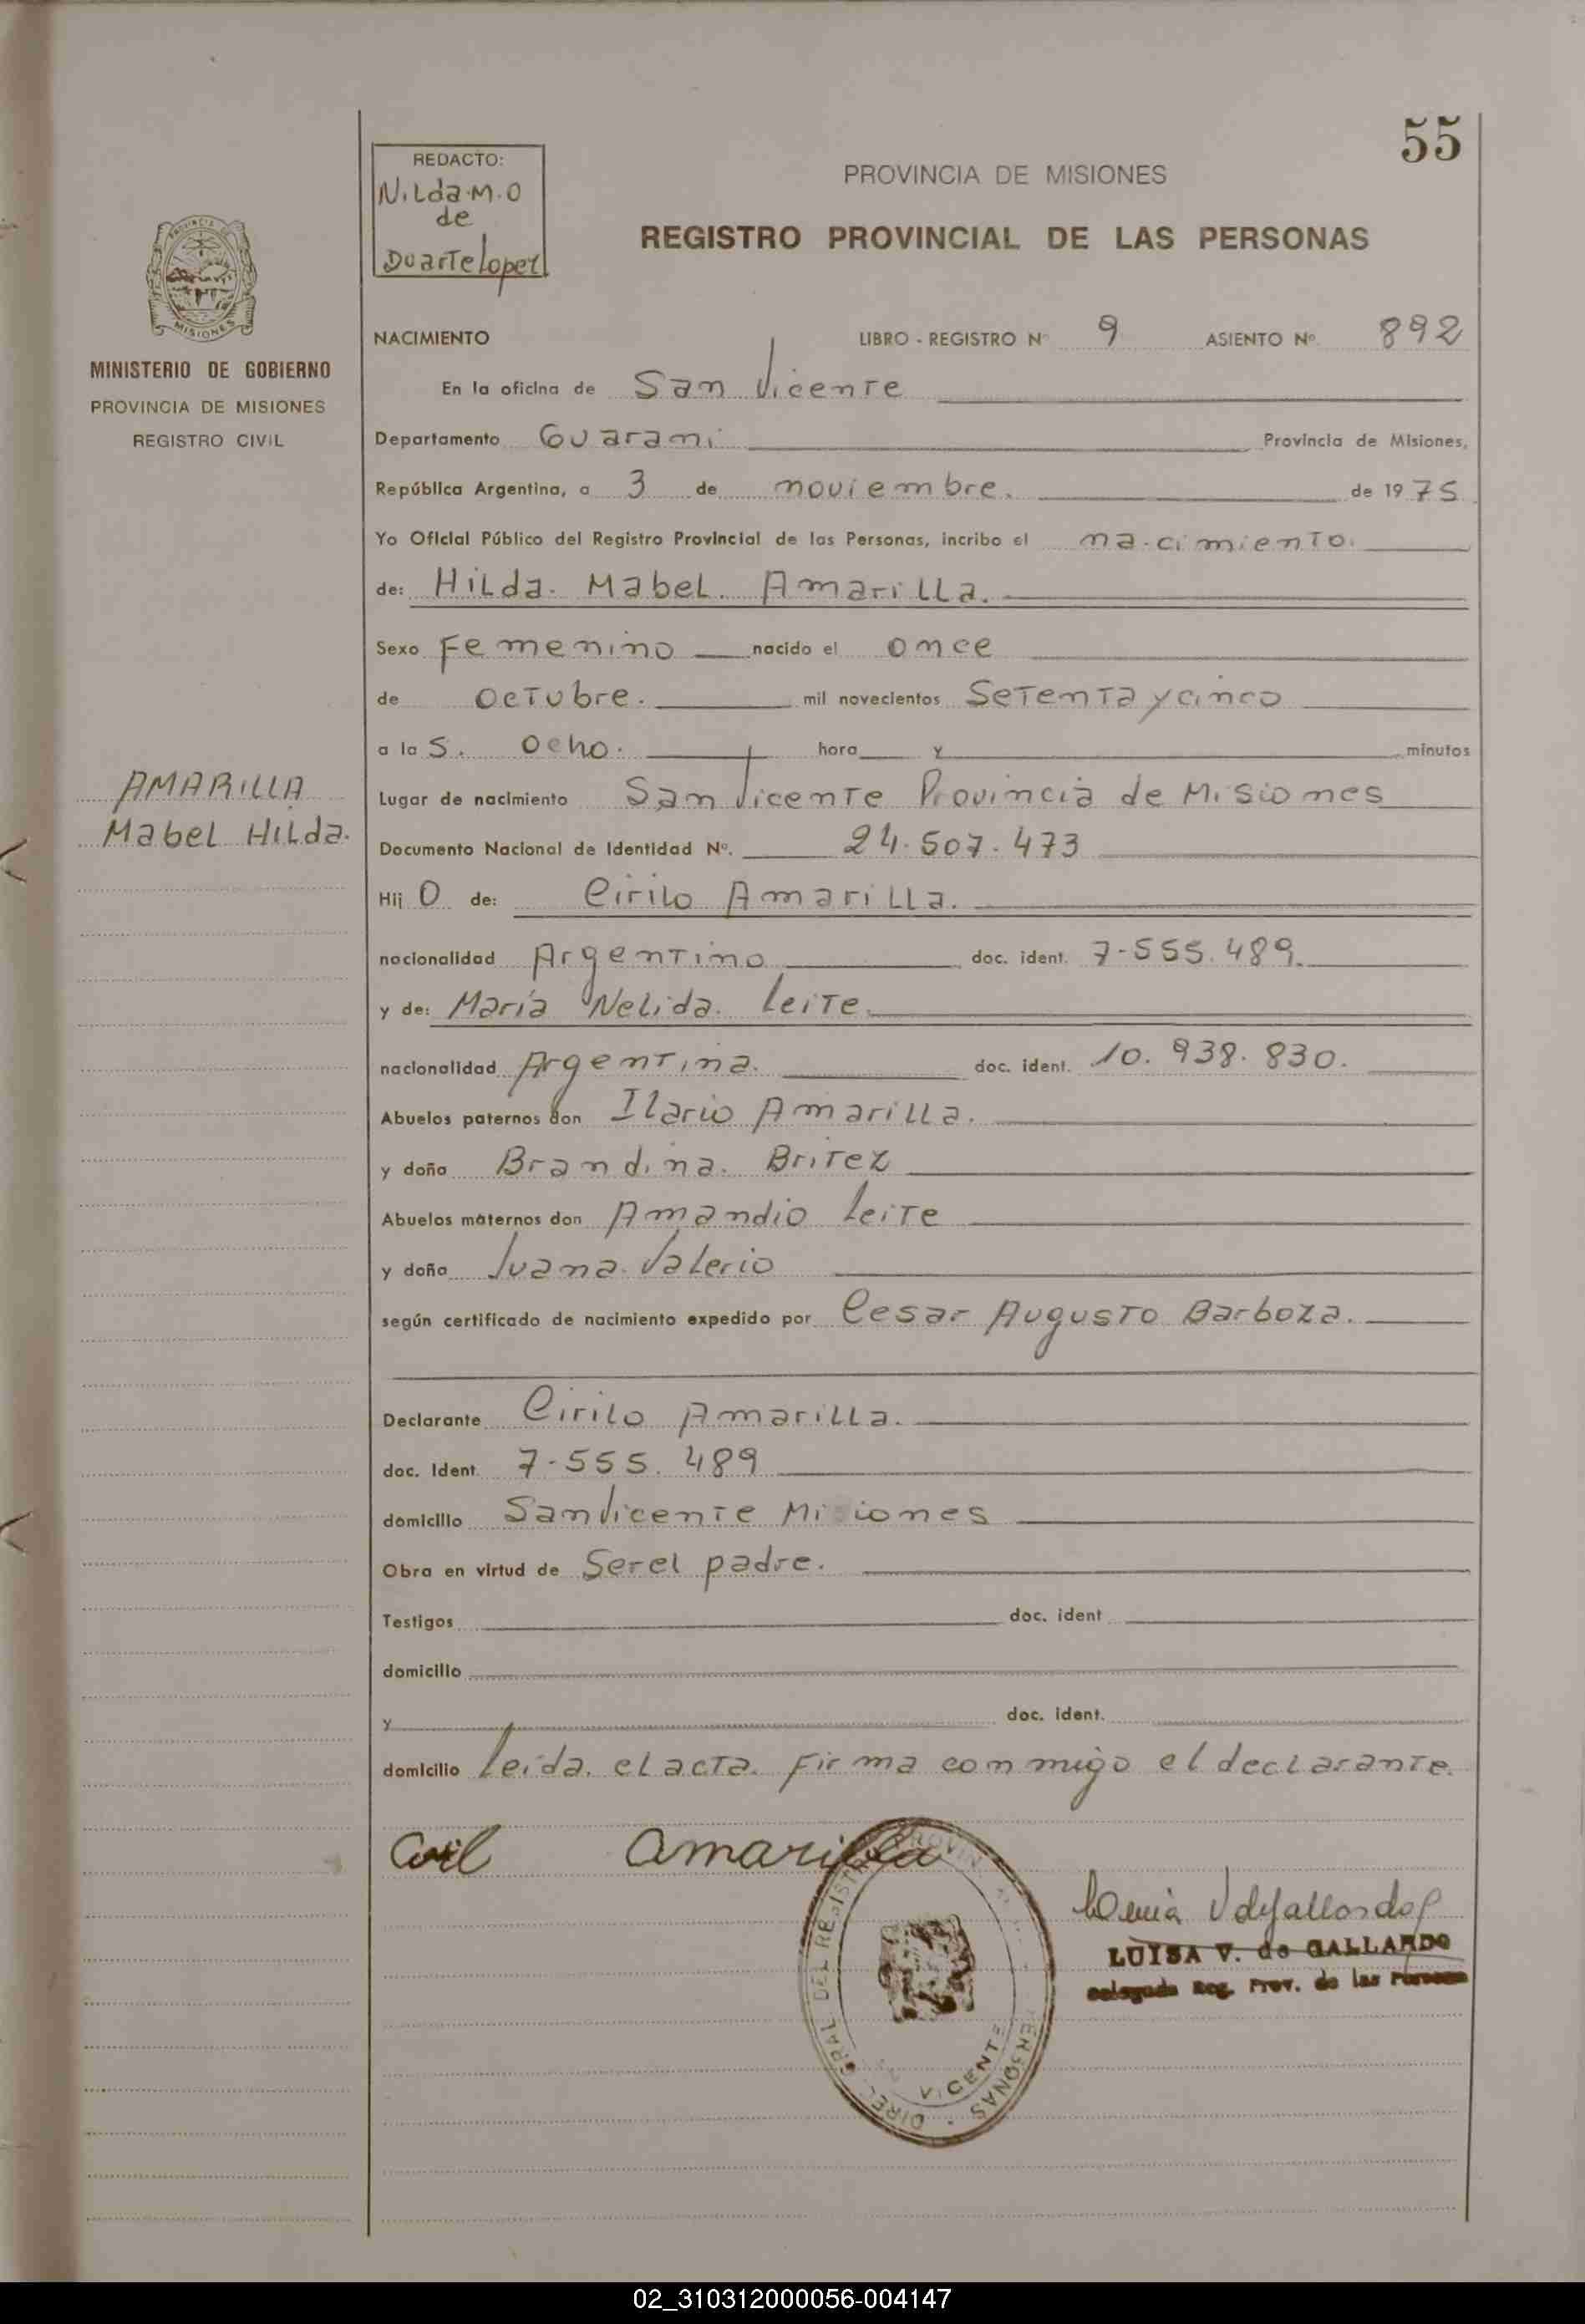 55
REDACTO:
Nilda M. O
de
Duarte Lopez
PROVINCIA DE MISIONES
REGISTRO PROVINCIAL DE LAS PERSONAS
MISIONES
MINISTERIO DE GOBIERNO
PROVINCIA DE MISIONES
REGISTRO CIVIL
NACIMIENTO LIBRO - REGISTRO Nº 9 ASIENTO Nº 892
En la oficina de San Vicente
Departamento Guarani Provincia de Misiones,
República Argentina, a 3 de noviembre. de 1975
Yo Oficial Público del Registro Provincial de las Personas, incribo el nacimiento.
de: Hilda. Mabel. Amarilla.
Sexo Femenino nacido el once
de octubre. mil novecientos Setenta y cinco
a las. ocho. hora y minutos
AMARILLA
Mabel Hilda.
Lugar de nacimiento San Vicente Provincia de Misiones
Documento Nacional de Identidad Nº. 24.507.473
Hij O de: Cirilo Amarilla.
nacionalidad Argentino doc. ident. 7-555.489.
y de: María Nelida. Leite.
nacionalidad Argentina. doc. ident. 10.938.830.
Abuelos paternos don Ilario Amarilla.
y doña Brandina. Britez
Abuelos maternos don Amandio Leite
y doña Juana Valerio
según certificado de nacimiento expedido por Cesar Augusto Barboza.
Declarante Cirilo Amarilla.
doc. Ident. 7-555.489
domicilio San Vicente Misiones
Obra en virtud de Ser el padre.
Testigos doc. ident
domicilio
y doc. ident.
domicilio Leida. el acta. firma conmigo el declarante.
Amarilla
DIREC. GRAL DEL REGISTRO PROVIN. PERSONAS
VICENTE
LUISA V. de GALLARDO
Delegada Reg. Prov. de las Personas
02_310312000056-004147